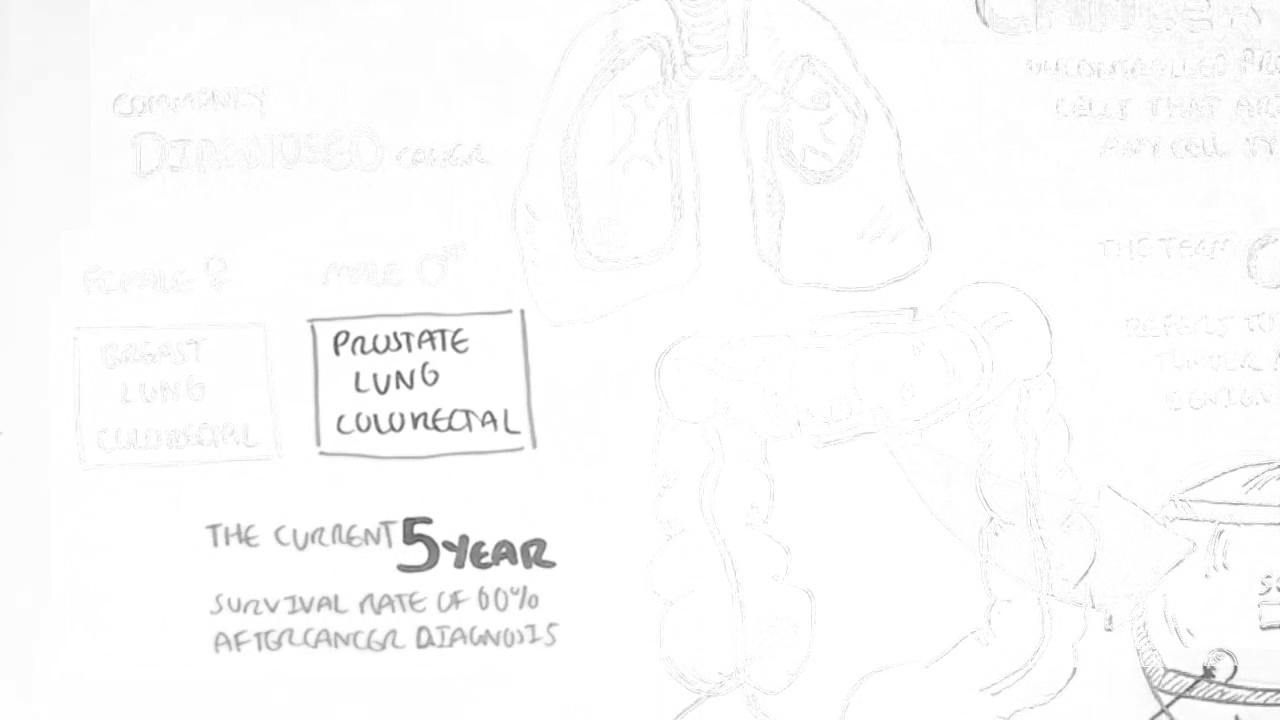 COMMONLY
DIAGNOSED CANCER
FEMALE ♀
MALE ♂
BREAST
LUNG
COLORECTAL
PROSTATE
LUNG
COLORECTAL
THE CURRENT 5 YEAR
SURVIVAL RATE OF 60%
AFTER CANCER DIAGNOSIS
CANCER
UNCONTROLLED
CELLS THAT
ANY CELL
THE TERM
REFERS TO